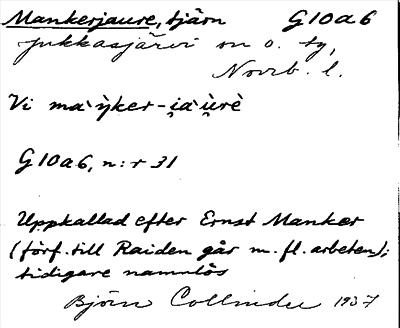 Mankerjaure, tjärn G10a6
Jukkasjärvi sn o. tg,
Norrb. l.
Vi
G10a6, n:r 31
Uppkallad efter Ernst Manker
(förf. till Raiden går m. fl. arbeten);
tidigare namnlös
Björn Collinder 1937